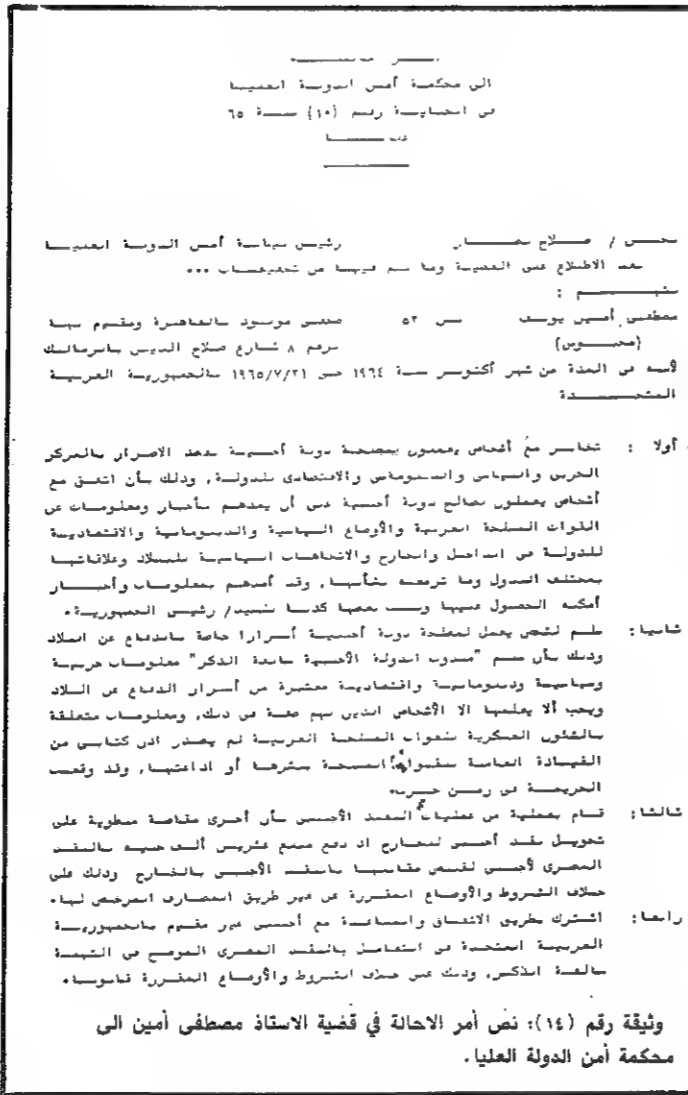 أمر
الى محكمة أمن الدولة العليا
فى الجناية رقم (١٠) سنة ٦٥
نحن / صلاح نصار رئيس نيابة أمن الدولة العليا
بعد الاطلاع على القضية وما تم فيها من تحقيقات ...
نتهم :
مصطفى أمين يوسف سن ٥٢ صحفى مولود بالقاهرة ومقيم بها
(محبوس) برقم ٨ شارع صلاح الدين بالزمالك
لأنه فى المدة من شهر أكتوبر سنة ١٩٦٤ حتى ١٩٦٥/٧/٢١ بالجمهورية العربية
المتحدة
أولا : تخابر مع أشخاص يعملون لمصلحة دولة أجنبية بقصد الاضرار بالمركز
الحربى والسياسى والدبلوماسى والاقتصادى للدولة، وذلك بأن اتفق مع
أشخاص يعملون لصالح دولة أجنبية على أن يمدهم بأخبار ومعلومات عن
القوات المسلحة العربية والأوضاع السياسية والدبلوماسية والاقتصادية
للدولة فى الداخل والخارج والاتجاهات السياسية للبلاد وعلاقاتها
بمختلف الدول وما ترمعه بشأنها، وقد أمدهم بمعلومات وأخبار
أمكنه الحصول عليها ونسب بعضها كذبا للسيد/ رئيس الجمهورية.
ثانيا: سلم لشخص يعمل لمصلحة دولة أجنبية أسرارا خاصة بالدفاع عن البلاد
وذلك بأن سلم "مندوب الدولة الأجنبية سالفة الذكر" معلومات حربية
وسياسية ودبلوماسية واقتصادية معتبرة من أسرار الدفاع عن البلاد
ويجب ألا يعلمها الا الأشخاص الذين لهم صفة فى ذلك، ومعلومات متعلقة
بالشئون العسكرية للقوات المسلحة العربية لم يصدر اذن كتابى من
القيادة العامة للقوات المسلحة بنشرها أو اذاعتها، وقد وقعت
الجريمة فى زمن حرب.
ثالثا: قام بعملية من عمليات النقد الأجنبى بأن أجرى مقاصة منطوية على
تحويل نقد أجنبى للخارج اذ دفع مبلغ عشرين ألف جنيه بالنقد
المصرى لأجنبى لقبض مقابلها بالنقد الأجنبى بالخارج وذلك على
خلاف الشروط والأوضاع المقررة عن غير طريق المصارف المرخص لها.
رابعا: اشترك بطريق الاتفاق والمساعدة مع أجنبى غير مقيم بالجمهورية
العربية المتحدة فى التعامل بالنقد المصرى الموضح فى التهمة
سالفة الذكر، وذلك على خلاف الشروط والأوضاع المقررة قانونا.
وثيقة رقم (١٤): نص أمر الاحالة في قضية الاستاذ مصطفى أمين الى
محكمة أمن الدولة العليا.